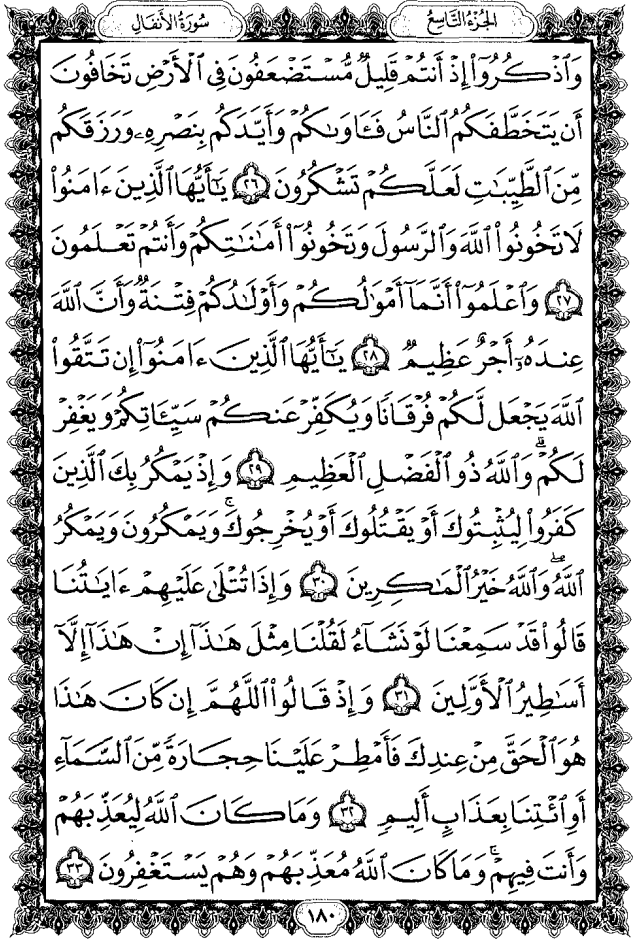 الجُزْءُ التَّاسِعُ
سُورَةُ الأَنفَالِ
وَٱذۡكُرُوٓاْ إِذۡ أَنتُمۡ قَلِيلٞ مُّسۡتَضۡعَفُونَ فِي ٱلۡأَرۡضِ تَخَافُونَ
أَن يَتَخَطَّفَكُمُ ٱلنَّاسُ فَـَٔاوَىٰكُمۡ وَأَيَّدَكُم بِنَصۡرِهِۦ وَرَزَقَكُم
مِّنَ ٱلطَّيِّبَٰتِ لَعَلَّكُمۡ تَشۡكُرُونَ ٢٦ يَٰٓأَيُّهَا ٱلَّذِينَ ءَامَنُواْ
لَا تَخُونُواْ ٱللَّهَ وَٱلرَّسُولَ وَتَخُونُوٓاْ أَمَٰنَٰتِكُمۡ وَأَنتُمۡ تَعۡلَمُونَ
٢٧ وَٱعۡلَمُوٓاْ أَنَّمَآ أَمۡوَٰلُكُمۡ وَأَوۡلَٰدُكُمۡ فِتۡنَةٞ وَأَنَّ ٱللَّهَ
عِندَهُۥٓ أَجۡرٌ عَظِيمٞ ٢٨ يَٰٓأَيُّهَا ٱلَّذِينَ ءَامَنُوٓاْ إِن تَتَّقُواْ
ٱللَّهَ يَجۡعَل لَّكُمۡ فُرۡقَانٗا وَيُكَفِّرۡ عَنكُمۡ سَيِّـَٔاتِكُمۡ وَيَغۡفِرۡ
لَكُمۡۗ وَٱللَّهُ ذُو ٱلۡفَضۡلِ ٱلۡعَظِيمِ ٢٩ وَإِذۡ يَمۡكُرُ بِكَ ٱلَّذِينَ
كَفَرُواْ لِيُثۡبِتُوكَ أَوۡ يَقۡتُلُوكَ أَوۡ يُخۡرِجُوكَۚ وَيَمۡكُرُونَ وَيَمۡكُرُ
ٱللَّهُۖ وَٱللَّهُ خَيۡرُ ٱلۡمَٰكِرِينَ ٣٠ وَإِذَا تُتۡلَىٰ عَلَيۡهِمۡ ءَايَٰتُنَا
قَالُواْ قَدۡ سَمِعۡنَا لَوۡ نَشَآءُ لَقُلۡنَا مِثۡلَ هَٰذَآ إِنۡ هَٰذَآ إِلَّآ
أَسَٰطِيرُ ٱلۡأَوَّلِينَ ٣١ وَإِذۡ قَالُواْ ٱللَّهُمَّ إِن كَانَ هَٰذَا
هُوَ ٱلۡحَقَّ مِنۡ عِندِكَ فَأَمۡطِرۡ عَلَيۡنَا حِجَارَةٗ مِّنَ ٱلسَّمَآءِ
أَوِ ٱئۡتِنَا بِعَذَابٍ أَلِيمٖ ٣٢ وَمَا كَانَ ٱللَّهُ لِيُعَذِّبَهُمۡ
وَأَنتَ فِيهِمۡۚ وَمَا كَانَ ٱللَّهُ مُعَذِّبَهُمۡ وَهُمۡ يَسۡتَغۡفِرُونَ ٣٣
١٨٠